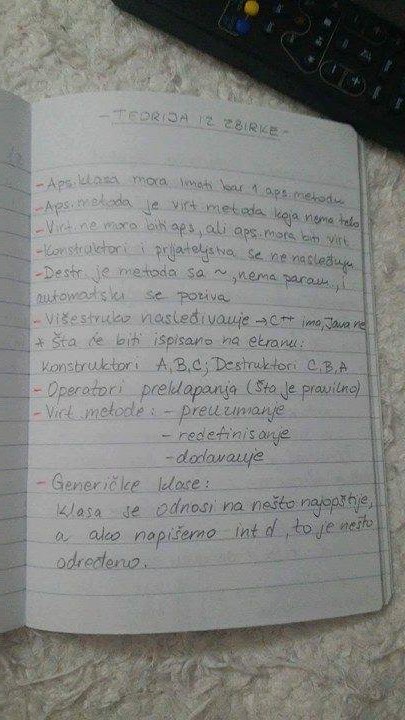 - TEORIJA IZ ZBIRKE -
- Aps. klasa mora imati bar 1 aps. metodu
- Aps. metoda je virt. metoda koja nema telo
- Virt. ne mora biti aps, ali aps. mora biti virt
- Konstruktori i prijateljstva se ne nasleđuju
- Destr. je metoda sa ~, nema param, i
automatski se poziva
- Višestruko nasleđivanje → C++ ima, Java ne
* Šta će biti ispisano na ekranu:
Konstruktori A,B,C; Destruktori C,B,A
- Operatori preklapanja (šta je pravilno)
- Virt metode: - preuzimanje
- redefinisanje
- dodavanje
- Generičke klase:
klasa se odnosi na nešto najopštije,
a ako napišemo int d, to je nešto
određeno.